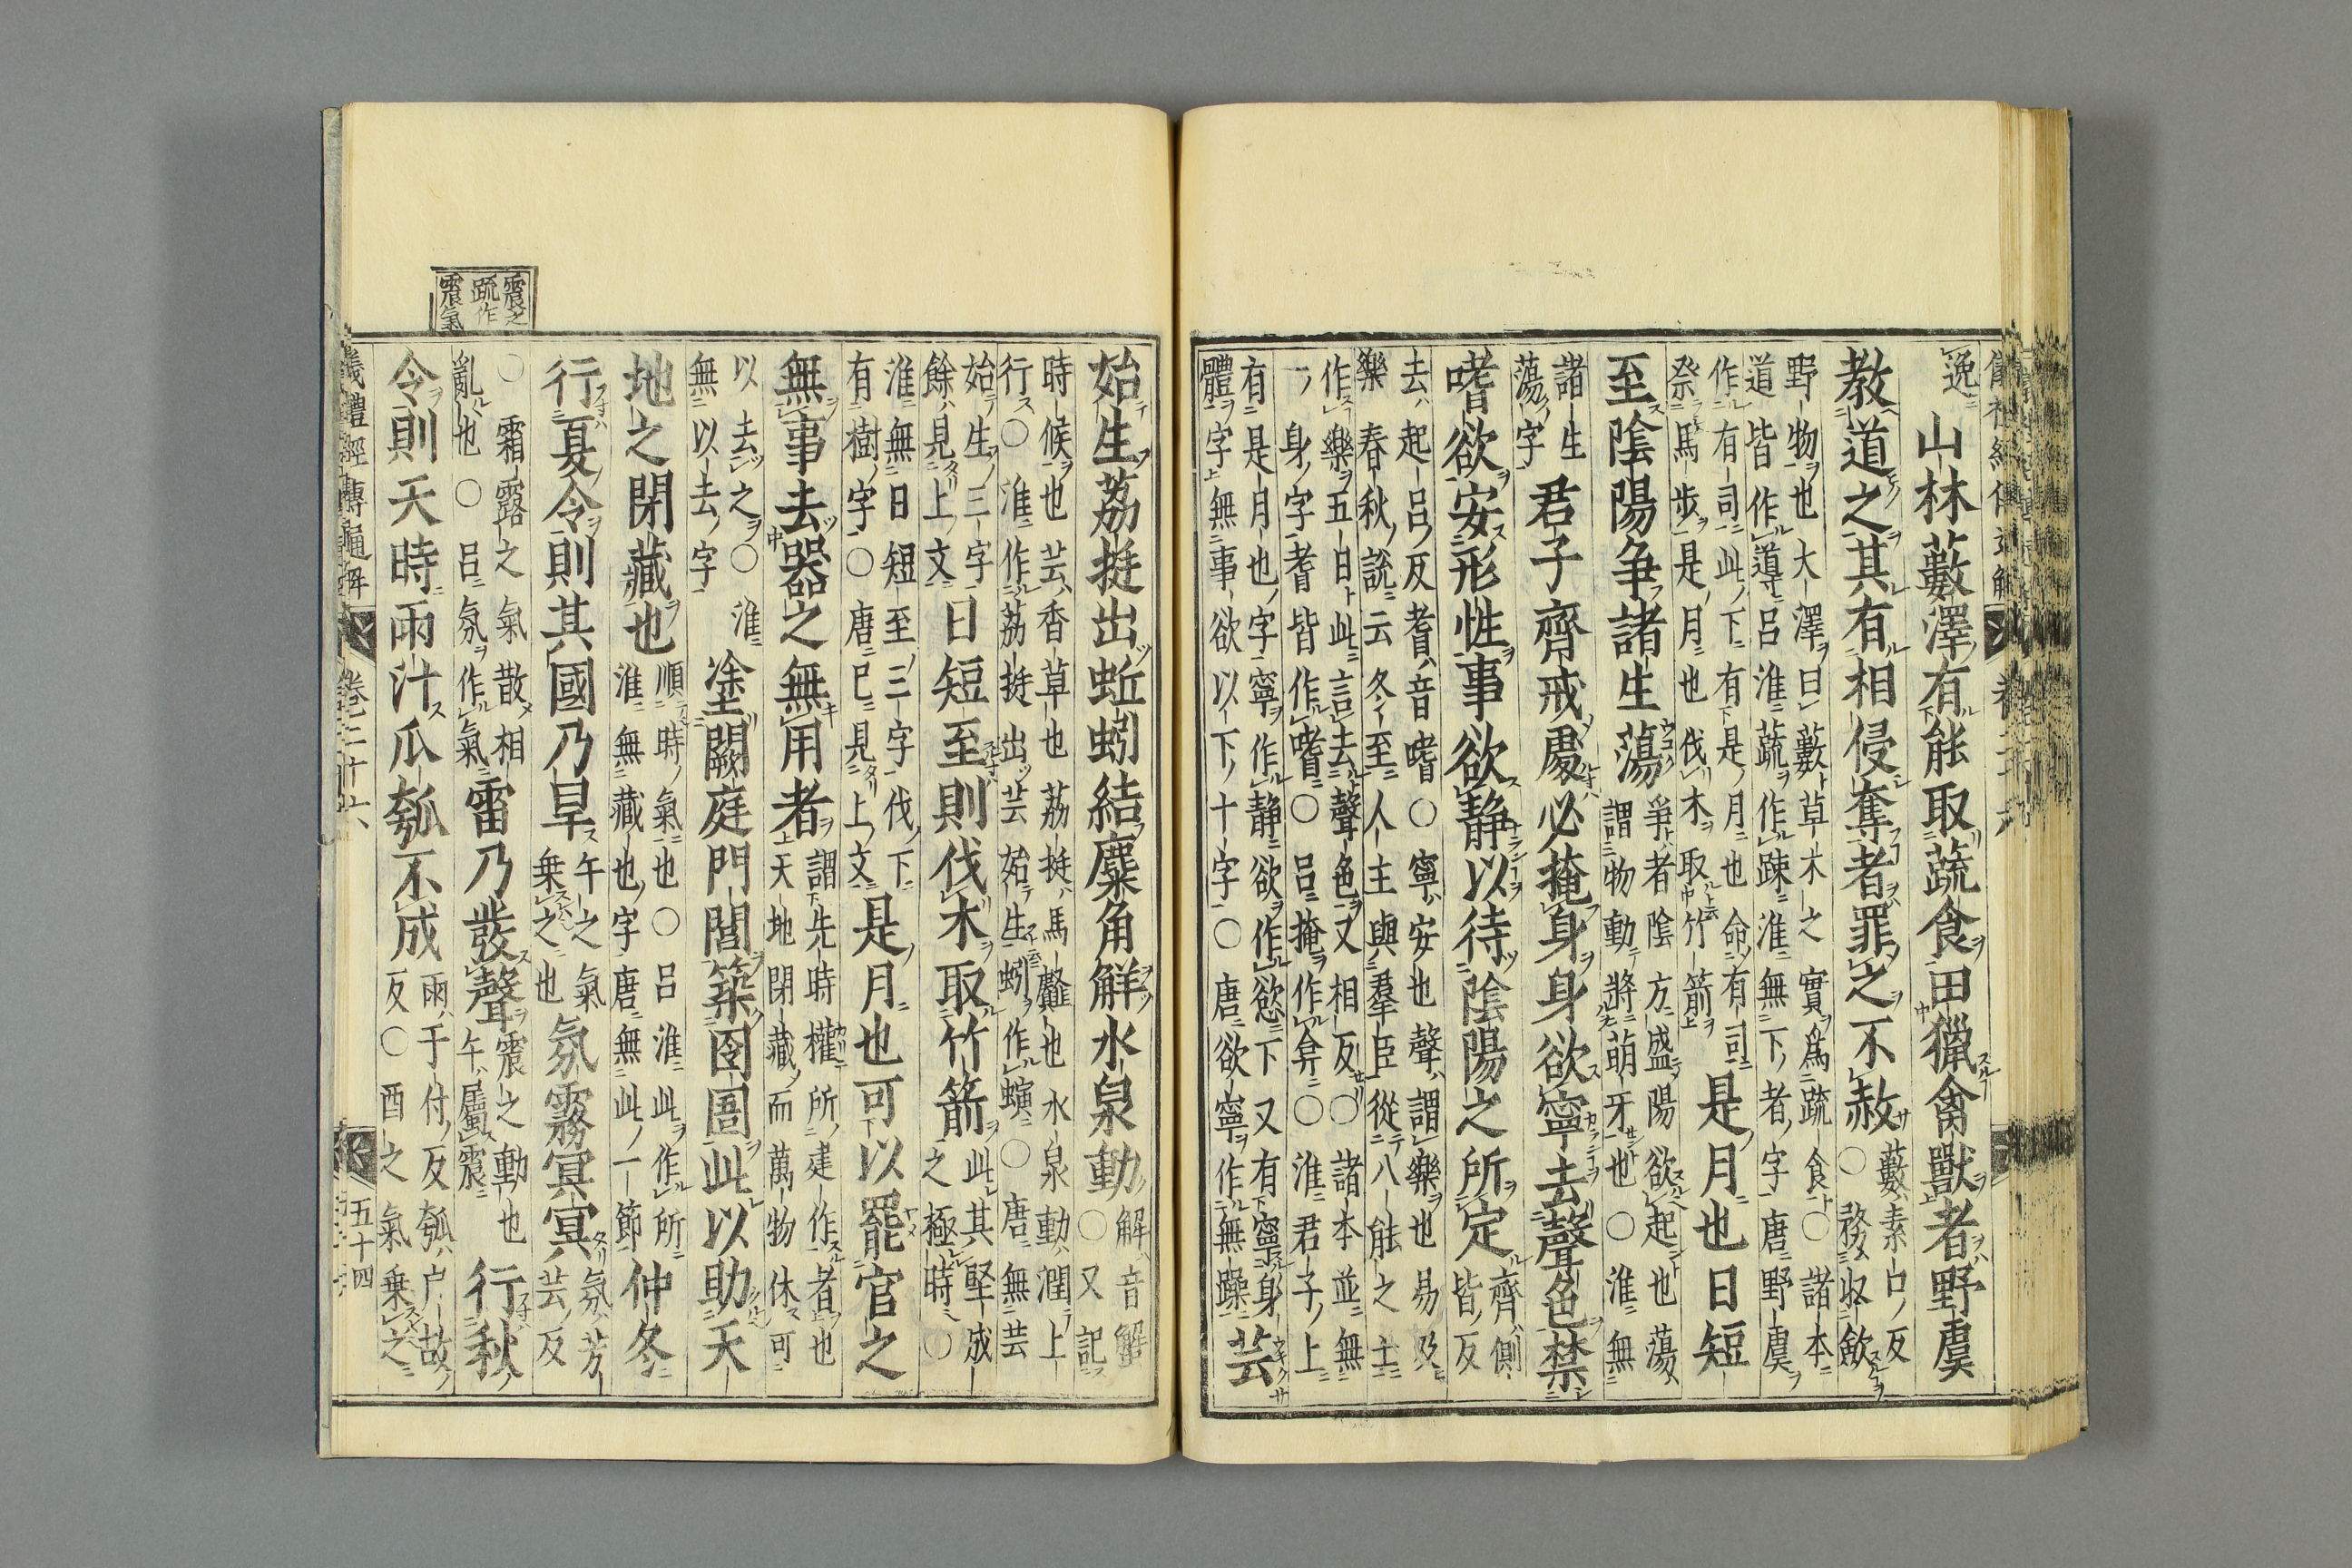 逸山林藪澤有能取蔬食田獵禽獸者野虞
教道之其有相侵奪者罪之不赦
藪素口反
○務收斂
野物也大澤曰藪草木之實爲疏食○諸本
道皆作導呂淮蔬作疎淮無下者字唐野虞
作有司此下有是月也命有司
祭馬步是月也伐木取竹箭
是月也日短
至陰陽争諸生蕩
爭者陰方盛陽欲起也蕩
謂物動將萌牙也○淮無
諸生
蕩字
君子齊戒處必掩身身欲寧去聲色禁
嗜欲安形性事欲静以待陰陽之所定
齊側
皆反
去起呂反耆音嗜○寧安也聲謂樂也易及
樂春秋說云冬至人主與羣臣從八能之士
作樂五日此言去聲色又相反○諸本並無
一身字耆皆作嗜○呂掩作弇○淮君子上
有是月也字寧作静欲作慾下又有寧身
體字無事欲以下十字○唐欲寧作無躁
芸
始生荔挺出蚯蚓結麋角解水泉動
解音蟹
○又記
時候也芸香草也荔挺馬䪥也水泉動潤上
行○淮作荔挺出芸始生蚓作螾○唐無芸
始生三字
餘見上文
日短至則伐木取竹箭
此其堅成
之極時○
淮無日短至三字伐下
有樹字○唐已見上文
是月也可以罷官之
無事去器之無用者
謂先時權所建作者也
天地閉藏而萬物休可
以去之○淮
無以去字
塗闕庭門閭築囹圄此以助天
地之閉藏也
順時氣也○呂淮此作所
淮無藏也字唐無此一節
仲冬
行夏令則其國乃旱
午之氣
乗之也
氛霧冥冥
氛芳
芸反
○霜露之氣散相
亂也○呂氛作氣
雷乃發聲
震之動也
午屬震
行秋
令則天時雨汁瓜瓠不成
雨于付反瓠戶故
反○酉之氣乗之
震之
疏作
震氣
儀禮經傳通解 卷二十六 五十四